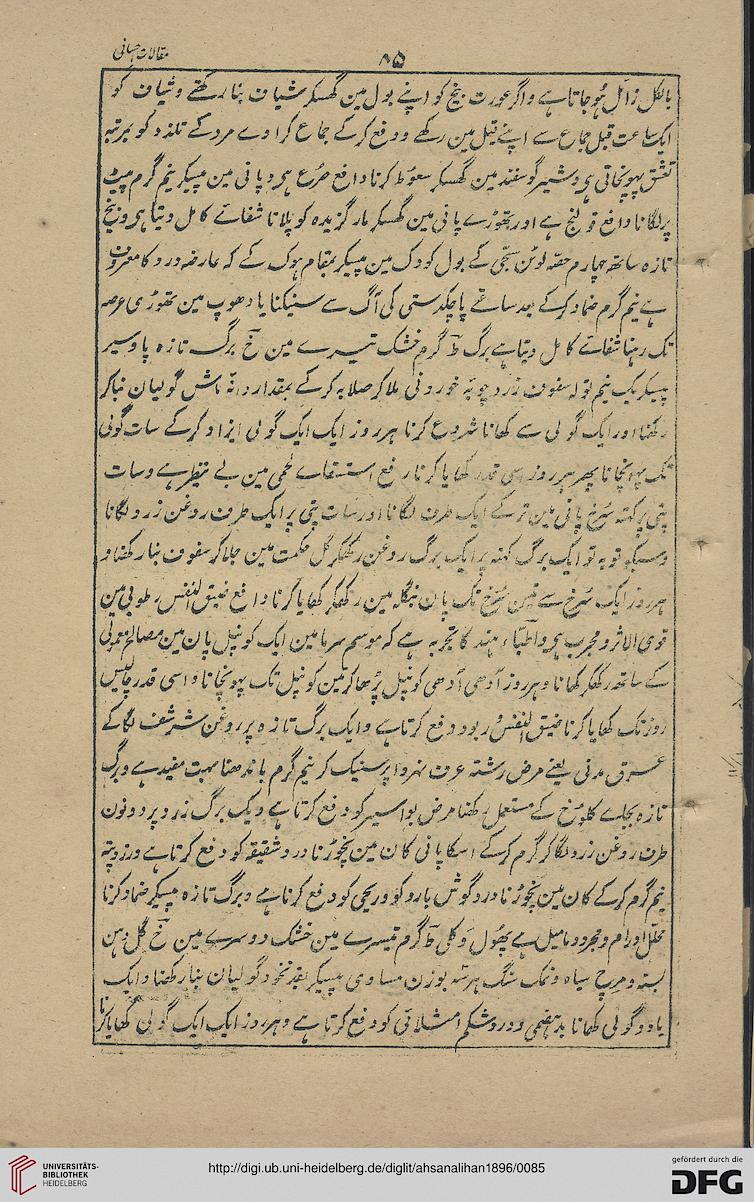 مقالات احسانی
۸۵
بالکل زائل ہوجاتاہے واگر عورت بیخ کو اپنے بول مین گھسکر شیاف بنا رکھے وشیاف کو
ایک ساعت قبل جماع سے اپنے قبل مین رکھے ودفع کرکے جماع کراوے مرد کے تلذذ کو بمرتبہ
تعشق پہونچاتی ہی وشیر گوسفند مین گھسکر سعوط کرنا دافع صرع ہی وپانی مین پیسکر نیم گرم پیٹ
پر لگانا دافع قولنج ہے اور تھوڑے پانی مین گھسکر مار گزیدہ کو پلانا شفائے کامل دیتا ہی وبیخ
تازہ ساتھ چہارم حصہ لوٹن سجی کے بول کودک مین پیسکر بمقام ہوک کے کہ عارضہ درد کا معروف
ہے نیم گرم ضماد کرکے بعد ساعتے پاچکدستی کی آگ سے سنیکنا یا دھوپ مین تھوڑی عرصہ
تک رہنا شفائے کامل دیتاہے برگ ط گرم خشک تیسرے مین خ برگ تازہ پاوسیر
پیسکر یک نیم تولہ سفوف زرد چوبہ خوردنی ملاکر صلایہ کرکے بمقدار دانہ ماش گولیان بناکر
رکھنا اور ایک گولی سے کھانا شروع کرنا ہرروز ایک ایک گولی ایزاد کرکے سات گولی
تک پہونچانا پھر ہرروز اسی قدر کھایا کرنا رفع استسقاے لحمی مین بے نظیر ہے وسات
پتی پر کتھہ سرخ پانی مین تر کرکے ایک طرف لگانا اور سات پتی پر ایک طرف روغن زرد لگانا
وسبکو توبہ تو ایک برگ کتھہ پر ایک برگ روغن رکھکر گل حکمت مین جلاکر سفوف بنا رکھنا و
ہرروز ایک سرخ سے تین سرخ تک پان بنگلہ مین رکھکر کھایا کرنا دافع ضیق النفس رطوبی مین
قوی الاثر ومجرب ہی واطباء ہند کا تجربہ ہے کہ موسم سرما مین ایک کونپل پان مین مصالح معمولی
کے ساتھ رکھکر کھانا وہرروز آدھی آدھی کونپل بڑھاکر تین کونپل تک پہونچانا واسی قدر چالیس
روز تک کھایا کرنا ضیق النفس وربو دفع کرتاہے وایک برگ تازہ پر روغن شرشف لگاکے
عرق مدنی یعنے مرض رشتہ عرف نہروا پر سنیک کر نیم گرم باندھنا بہت مفید ہے وبرگ
تازہ بجاے کلوخ کے مستعمل رکھنا مرض بواسیر کو دفع کرتا ہے ویک برگ زرد پر دونون
طرف روغن زرد لگاکر گرم کرکے اسکا پانی کان مین نچوڑنا درد شقیقہ کو دفع کرتاہے وزرد پتہ
نیم گرم کرکے کان مین نچوڑنا درد گوش بارد وریحی کو دفع کرتاہے وبرگ تازہ پیسکر ضماد کرنا
محلل اورام ودمامیل ہے پھول وکلی ط گرم تیسرے مین خشک دوسرے مین خ گل دہن
بستہ ومرچ سیاہ ونمک سنگ ہرسہ بوزن مساوی پیسکر بقدر نخود گولیان بنا رکھنا وایک
یا دو گولی کھانا بدہضمی ودرد شکم امتلائی کو دفع کرتا ہے وہرروز ایک ایک گولی کھایا کرنا
UNIVERSITÄTS-
BIBLIOTHEK
HEIDELBERG
http://digi.ub.uni-heidelberg.de/diglit/ahsanalihan1896/0085
gefördert durch die
DFG